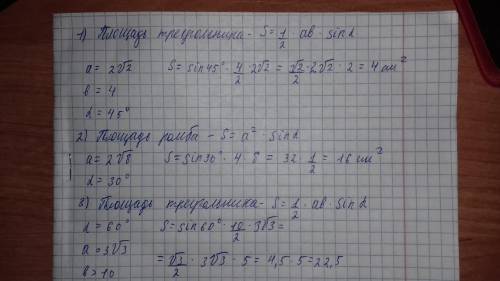 1) Площадь треугольника - S = 1/2 · ab · sin α
a = 2√2 S = sin 45° · 4/2 · 2√2 = √2/2 · 2√2 · 2 = 4 см²
b = 4
α = 45°
2) Площадь ромба - S = a² · sin α
a = 2√8 S = sin 30° · 4 · 8 = 32 · 1/2 = 16 см²
α = 30°
3) Площадь треугольника - S = 1/2 · ab · sin α
α = 60° S = sin 60° · 10/2 · 3√3 =
a = 3√3 = √3/2 · 3√3 · 5 = 4,5 · 5 = 22,5
b = 10